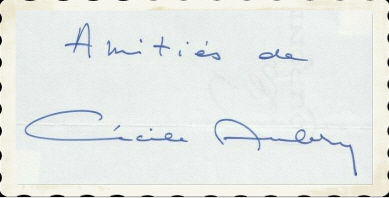 Amitiés de
Cécile Aubry